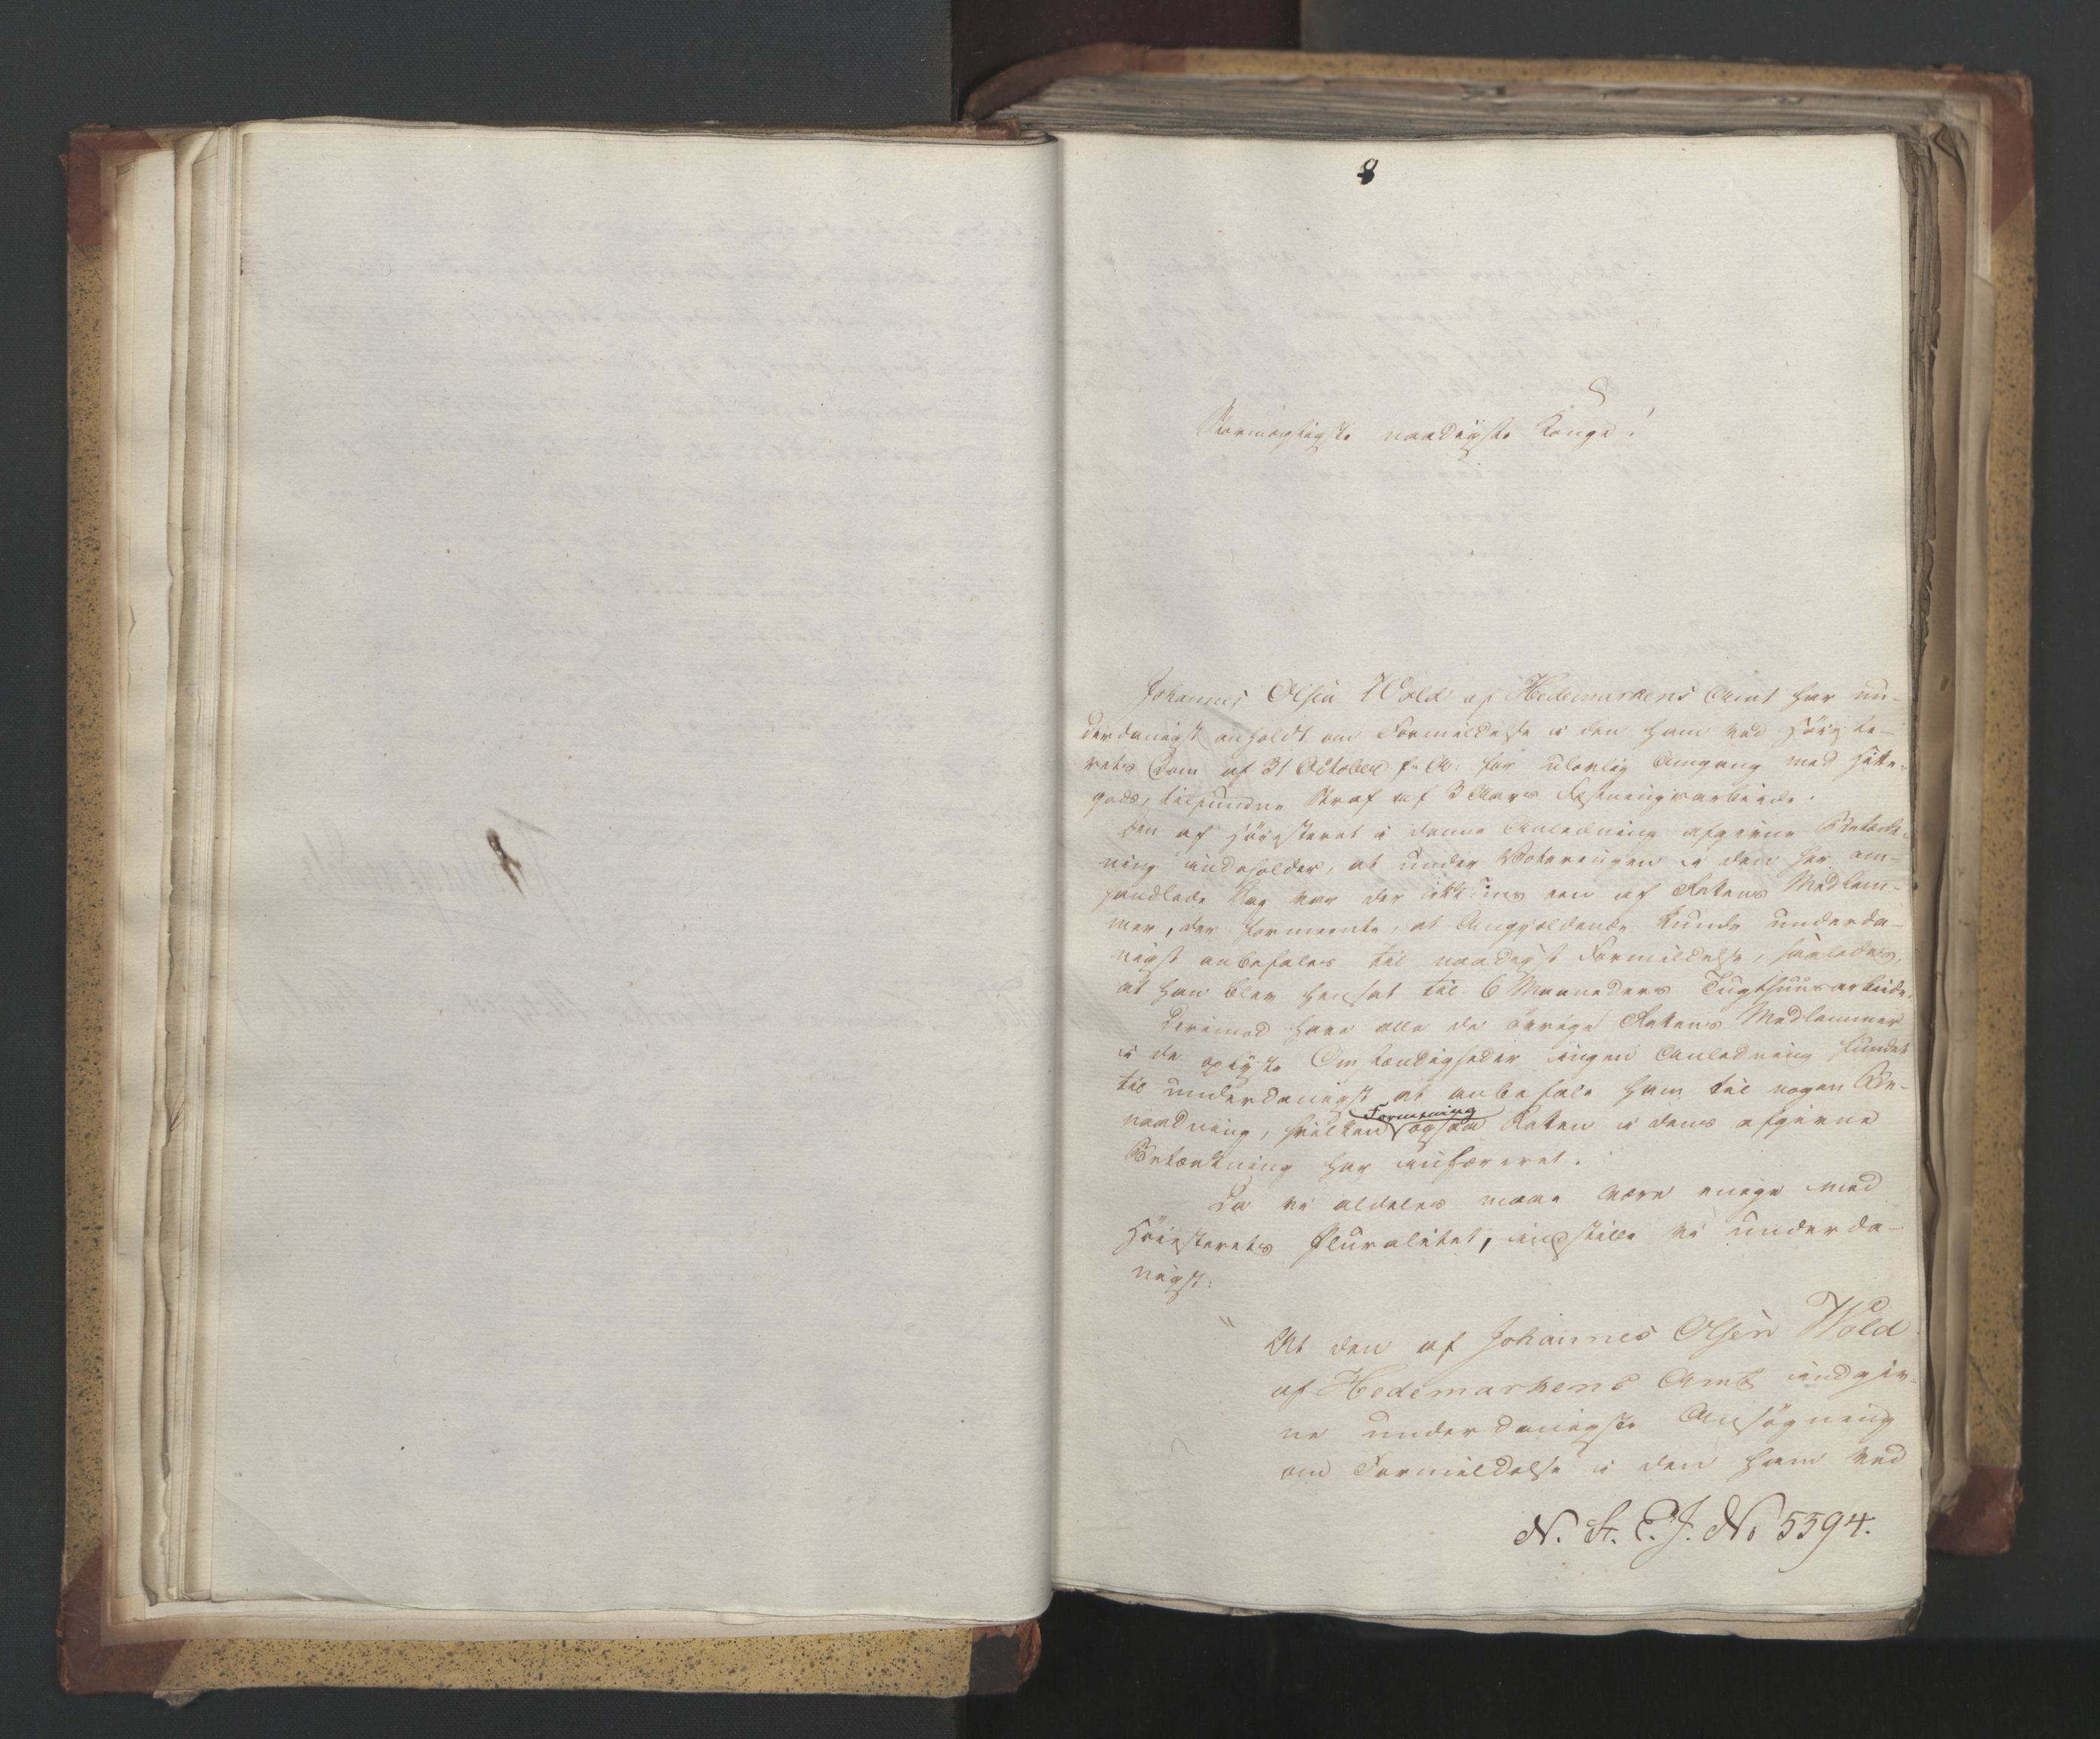 8
Stormægtigste naadigste Konge!
Johannes Olsen Wold af Hedemarkens Amt har un-
derdanigst anholdt om Formildelse i den ham ved Høieste-
rets Dom af 31 October f. A. for ulovlig Omgang med Hitte-
gods, tilfundne Straf af 3 Aars Fæstningsarbeide.
Den af Høiesteret i denne Anledning afgivne Betænk-
ning indeholder, at under Voteringen i den her om-
handlede Sag var der ikkuns een af Rettens Medlem-
mer, der formeente, at Angjældende kunde underda-
nigst anbefales til naadigst Formildelse, saaledes,
at han blev hensat til 6 Maaneders Tugthuusarbeide.
Derimod have alle de øvrige Rettens Medlemmer
i de oplyste Omstændigheder ingen Anledning fundet
til underdanigst at anbefale ham til nogen Be-
naadning, hvilken Formening ogsaa Retten i dens afgivne
Betænkning har
Da vi aldeles maae være enige med
Høiesterets Pluralitet, indstille vi underda-
nigst:
" At den af Johannes Olsen Wold
af Hedemarkens Amt indgiv-
ne underdanigste Ansøgning
om Formildelse i den ham ved
N. St. E. J. No 5594.